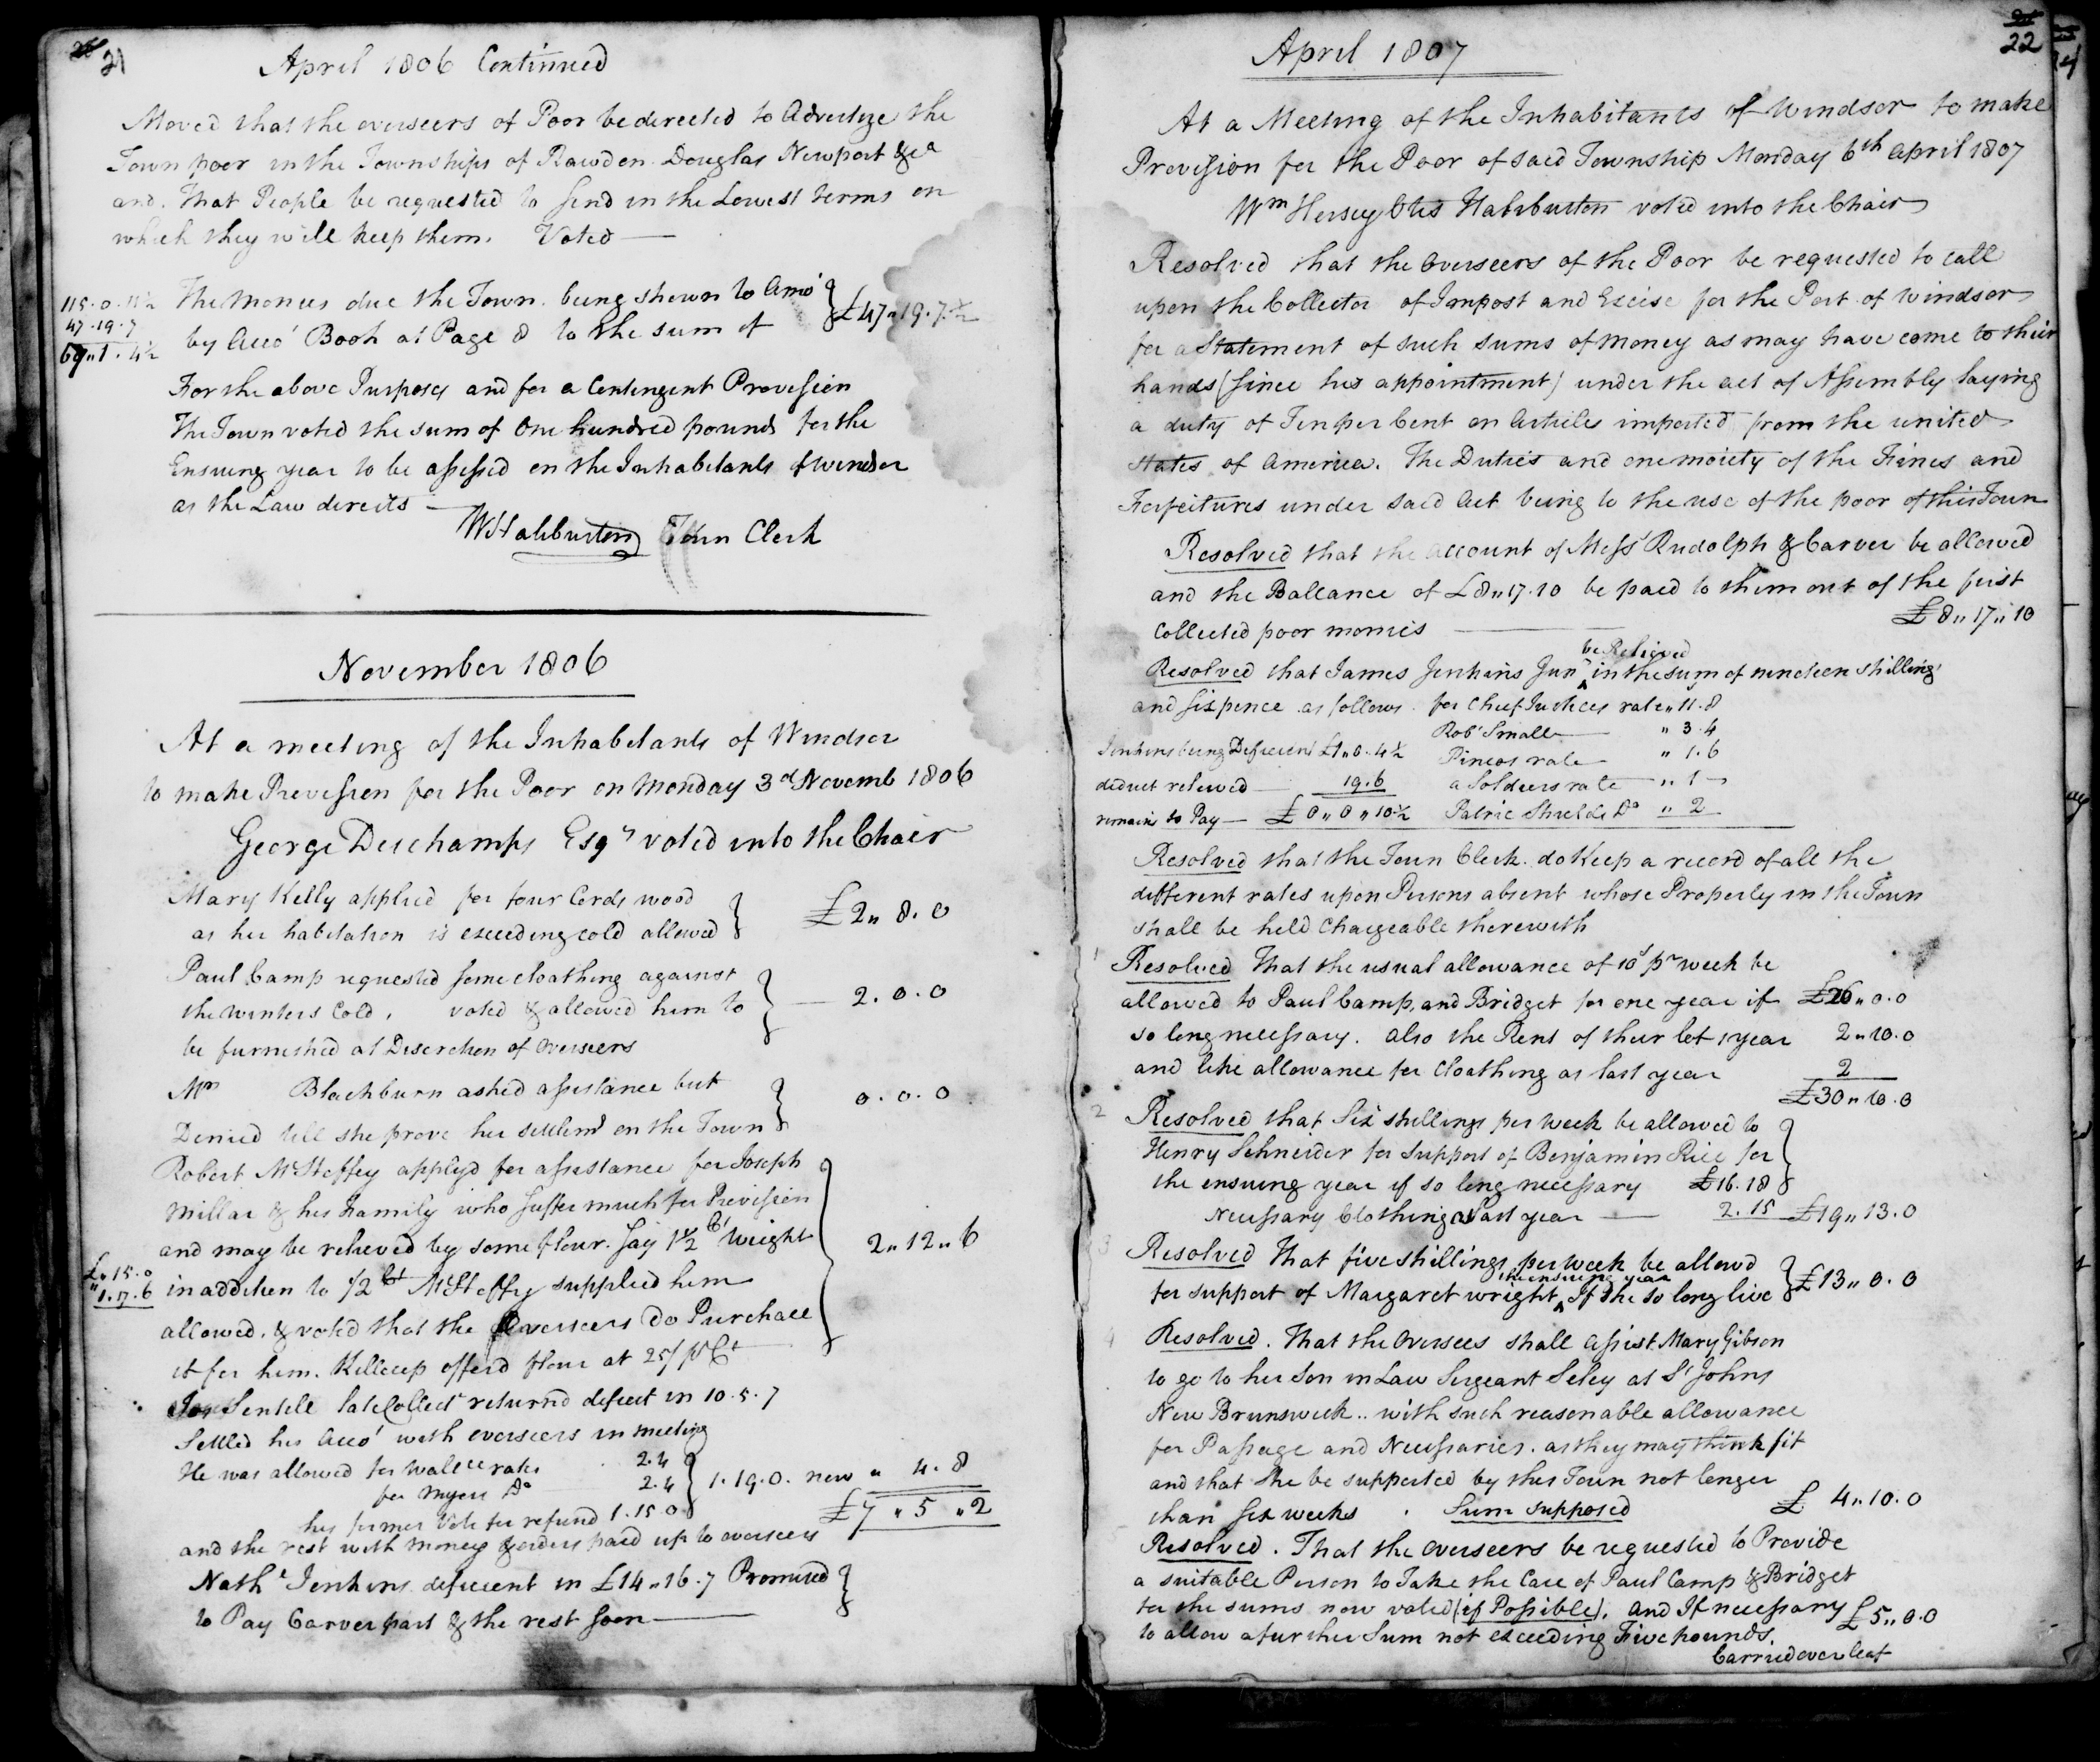 21
April 1806 Continued
Moved that the overseers of Poor be directed to Advertize the
Town poor in the Townships of Rawdon Douglas Newport &ca
and. That People be requested to Send in the Lowest terms on
which they will keep them. Voted —
115.0.11½ The Monies due the Town. being shewn to Amot
47.19.7 by Acco' Book at Page 8 to the sum of } £47"19.7½
67"1.4½
For the above Purposes and for a Contingent Provision
The Town voted the sum of One hundred pounds for the
Ensuing year to be assessed on the Inhabitants of Windsor
as the Law directs —
WHaliburton Town Clerk
November 1806
At a meeting of the Inhabitants of Windsor
to make Provision for the Poor on Monday 3d Novemb 1806
George Deschamps Esqr voted into the Chair
Mary Kelly applied for four Cords wood
as her habitation is exceeding cold allowed } £2"8.0
Paul Camp requested some cloathing against
the winters Cold, voted & allowed him to } — 2.0.0
be furnished at Discretion of Overseers
Mrs Blackburn asked assistance but
Denied till she prove her settlemt on the Town } 0.0.0
Robert McHeffey applyd for assistance for Joseph
Millar & his Family who suffer much for Provision
and may be relieved by some flour. Say 1½ Ct Weight } 2"12"6
£"15.0 in addition to 1/2 Ct McHeffy supplied him
"1.17.6
allowed. & voted that the Overseers Do Purchase
it for him. Killcup offerd flour at 25/ pr Ct
Jos Sentell late Collectr returnd deficit in 10.5.7
Settled his Acco' with overseers in meeting
He was allowed for Wallce rates 2.4
for Myers Do 2.4 } 1.19.0. new " 4.8
his former Vote for refund 1.15.0 £7"5"2
and the rest with money & orders paid up to overseers
Nathl Jenkins deficient in £14"16.7 Promised
to Pay Carver part & the rest soon — }
22
April 1807
At a Meeting of the Inhabitants of Windsor to make
Provision for the Poor of said Township Monday 6th April 1807
Wm Hersey Otis Haliburton voted into the Chair
Resolved that the Overseers of the Poor be requested to call
upon the Collector of Impost and Excise for the Port of Windsor
for a Statement of such sums of Money as may have come to their
hands (since his appointment) under the act of Assembly laying
a duty of Ten per Cent on Articles imported from the united
States of America. The Duties and one moiety of the Fines and
Forfeitures under said Act being to the use of the poor of this Town
Resolved that the Account of Messs Rudolph & Carver be allowed
and the Ballance of £8"17.10 be paid to them out of the first
Collected poor monies — £8"17"10
be Relieved
Resolved that James Jenkins Junr ^ in the sum of nineteen shillings
and sixpence as follows. for Chief Justices rate " 11.8
Robt Small — " 3.4
Jenkins being Deficient £1"0.4½ Pineos rate — " 1.6
deduct relieved — 19.6 a Soldiers rate — " 1 —
remains to Pay — £0"0"10½ Patric Shields Do " 2
Resolved that the Town Clerk do Keep a record of all the
different rates upon Persons absent whose Property in the Town
shall be held Chargeable therewith
1 Resolved That the usual allowance of 10s pr week be
allowed to Paul Camp, and Bridget for one year if £26"0.0
so long necessary. also the Rent of their let 1 year 2"10.0
and like allowance for Cloathing as last year 2
£30"10.0
2 Resolved that Six shillings per week be allowed to
Henry Schneider for support of Benjamin Rice for }
the ensuing year if so long necessary £16.18
Necessary Clothing as last year — 2.15 £19"13.0
3 Resolved That five shillings per week be allowd
the ensuing year
for support of Margaret wright ^ If she so long live } £13"0.0
4 Resolved. That the Oversees shall Assist Mary Gibson
to go to her Son in Law Sergeant Seley at St Johns
New Brunswick.. with such reasonable allowance
for Passage and Necessaries. as they may think fit
and that she be supported by this Town not longer
than six weeks . Sum supposed £ 4"10.0
5 Resolved. That the Overseers be requested to Provide
a suitable Person to Take the Care of Paul Camp & Bridget
for the sums now voted (if Possible). And If necessary £5"0.0
to allow a further Sum not exceeding Five pounds.
Carried over leaf